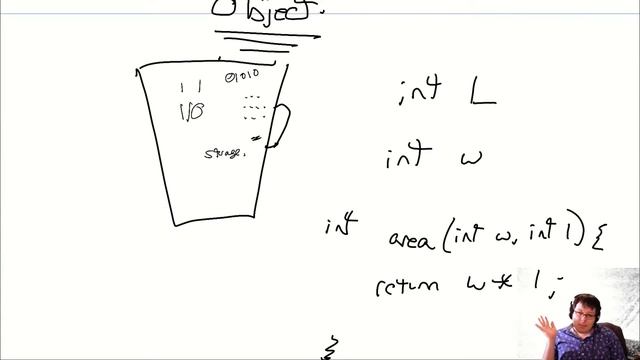 Object.
01010
I/O
storage.
int L
int w
int area (int w, int l) {
return w * l ;
}